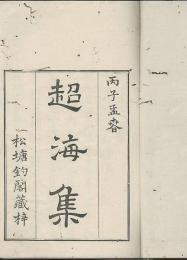 丙子孟春
超海集
松塘釣閣藏梓